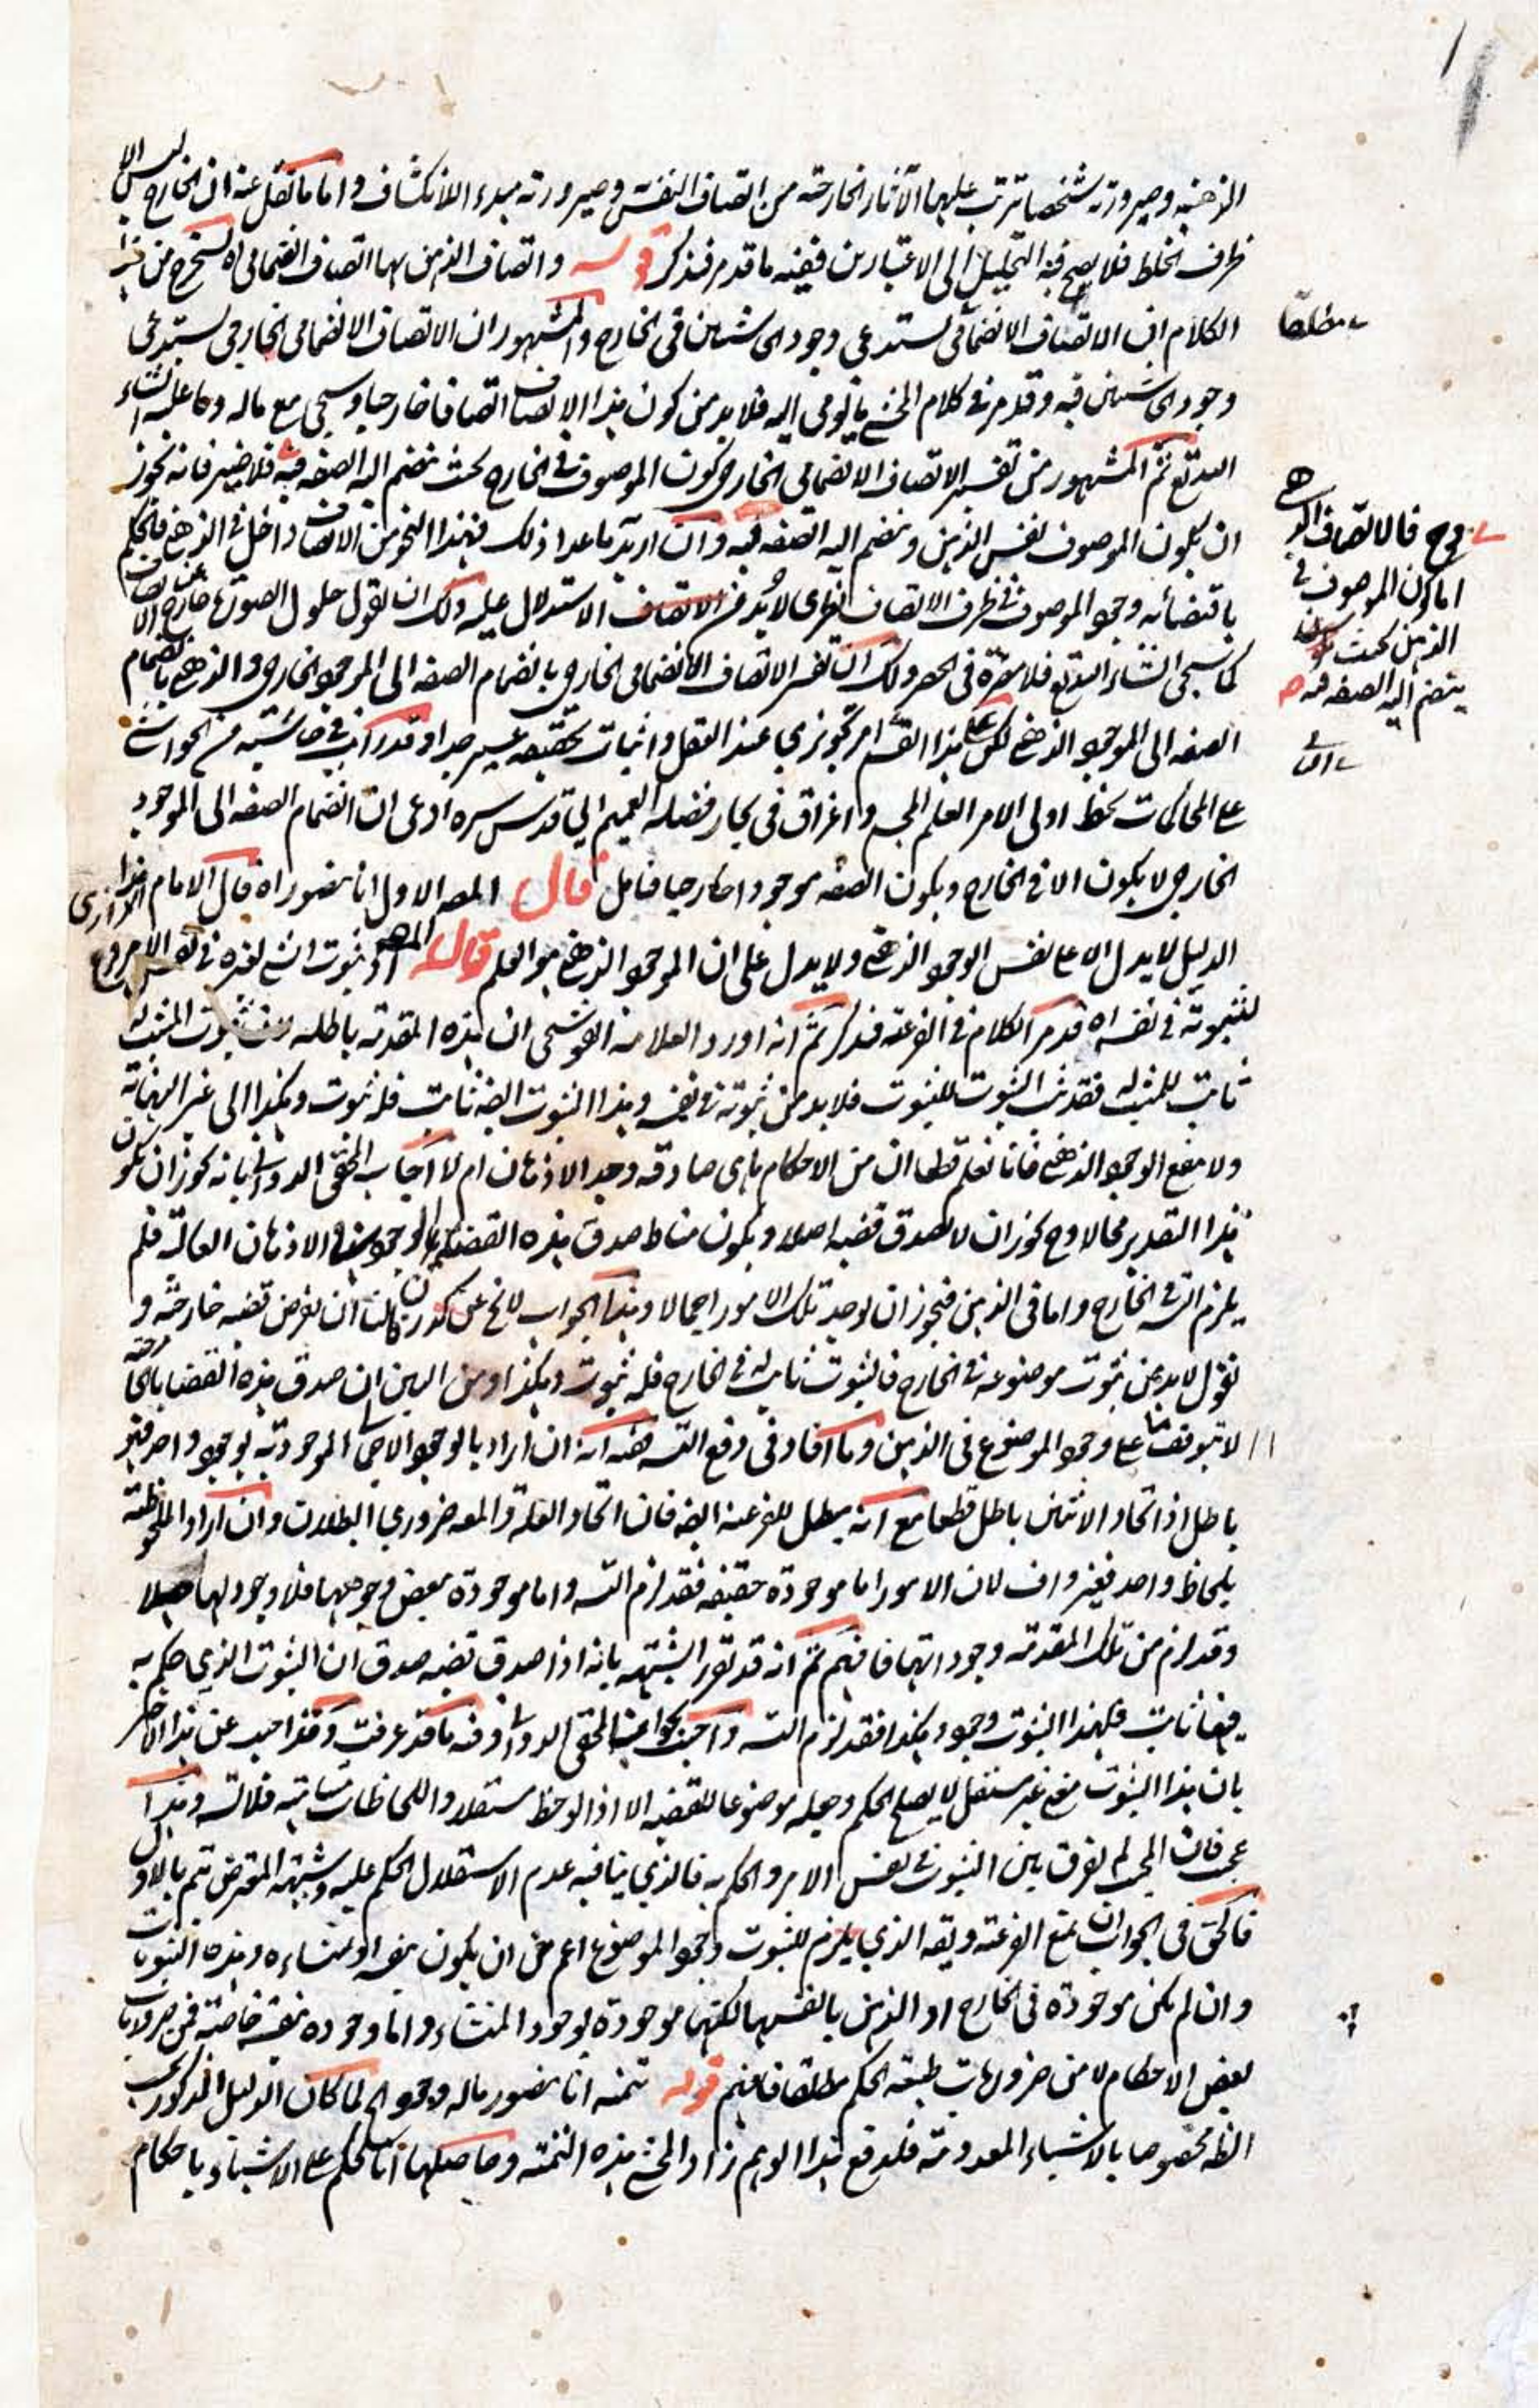 الذهنية وصيرورته شخصا يترتب عليها الآثار الخارجية من اتصاف النفس وصيرورته مبدء الانكشاف واما ما نقل عنه ان الخارج ليس الا
ظرف الخلط فلا يصح فيه التحليل الى الاعتبارين ففيه ما قد مر فتذكر قوله واتصاف الذهن بها اتصاف انضمامي اه يستخرج من هذا
الكلام ان الاتصاف الانضمامي يستدعي وجود الحاشيتين في الخارج والمشهور ان الاتصاف الانضمامي الخارجي يستدعي
وجود الحاشيتين فيه وقد مر في كلام المحشي ما يومي اليه فلا بد من كون هذا الاتصاف اتصافا خارجيا وسيجي مع ما له وما عليه ان شاء
البديع ثم المشهور من تفسير الاتصاف الانضمامي الخارجي كون الموصوف في الخارج بحيث ينضم اليه الصفة فيه فلا ضير فانه يجوز
ان يكون الموصوف نفس الذهن وينضم اليه الصفة فيه وان اريد ما عدا ذلك فهذا النحو من الاتصاف داخل في الذهني فالحكم
باقتضائه وجود الموصوف في ظرف الاتصاف نظري لا بد من الاستدلال عليه ولك ان تقول حلول الصورة خارج عن الاتصاف
كما سيجي ان شاء البديع فلا مضرة في الحصر ولك ان تفسر الاتصاف الانضمامي الخارجي بانضمام الصفة الى الموجود الخارجي والذهني بانضمام
الصفة الى الموجود الذهني لكن هذا القسم امر تجويزي عند العقل واثبات تحققه عسير جدا وقد رأيت في حاشية من الحواشي
على المحاكمات بخط اولى الامر العلم ابي واغراق في بحار فضله العميم ابي قدس سره ادعى ان انضمام الصفة الى الموجود
الخارجي لا يكون الا في الخارج ويكون الصفة موجودا خارجيا فتأمل قال المص الاول انا نتصور اه قال الامام الرازي هذا
الدليل لا يدل الا على نفس الوجود الذهني ولا يدل على ان الموجود الذهني هو العلم قال المص اذ ثبوت الشيء لغيره في نفس الامر فرع
لثبوته في نفسه اه قد مر الكلام في الفرعية فتذكر ثم انه اورد العلامة القوشجي ان هذه المقدمة باطلة فثبوت المثبت له
ثابت للمثبت له فقد ثبت الثبوت للثبوت فلا بد من ثبوته في نفسه وهذا الثبوت ايضا ثابت فله ثبوت وهكذا الى غير النهاية
ولا ينفع الوجود الذهني فانا نعلم قطعا ان من الاحكام ما هي صادقة وجد الاذهان ام لا اجاب المحقق الدواني بانه يجوز ان يكون
هذا التقدير محالا وح يجوز ان لا يصدق قضية اصلا ويكون مناط صدق هذه القضية الوجود في الاذهان العالية فلم
يلزم التس في الخارج واما في الذهن فيجوز ان يوجد تلك الامور اجمالا وهذا الجواب لا يخ عن ان نفرض قضية خارجية و
نقول لا بد من ثبوت موضوعه في الخارج فالثبوت ثابت له في الخارج فله ثبوت وهكذا ومن البين ان صدق هذه القضايا الخارجية
لا يتوقف على وجود الموضوع في الذهن وما افاد في دفع التس ففيه انه ان اراد بالوجود الاجمالي الموجودية بوجود واحد فهو
باطل اذ اتحاد الاثنين باطل قطعا مع انه يبطل الفرعية ايضا فان اتحاد العلة والمعه ضروري البطلان وان اراد الملحوظية
بلحاظ واحد فغير واف لان الامور اما موجودة حقيقة فقد لزم التس واما موجودة بعض وجوهها فلا وجود لها اصلا
وقد لزم من تلك المقدمة وجوداتها فافهم ثم انه قد تقرر الشبهة بانه اذا صدق قضية صدق ان الثبوت الذي حكم به
فيها ثابت فلهذا الثبوت وجود وهكذا فقد لزم التس واجيب بجواب المحقق الدواني وفيه ما قد عرفت وقد اجيب عن هذا الاخير
بان هذا الثبوت معنى غير مستقل لا يصلح للحكم وجعله موضوعا للقضية الا اذا لوحظ مستقلا واللحاظات متناهية فلا تس وهذا
عجب فان المجيب لم يفرق بين الثبوت في نفس الامر والحكم به فالذي ينافيه عدم الاستقلال الحكم عليه وشبهة المعترض تتم بالاول
فالحق في الجواب ان يمنع الفرعية ويقه الذي يلزم للثبوت وجود الموضوع اعم من ان يكون بنفسه او بمنشاءه وهذه الثبوتات
وان لم يكن موجودة في الخارج او الذهن بانفسها لكنها موجودة بوجود المنشاء واما وجوده بنفسه خاصة فمن ضروريات
بعض الاحكام لا من ضروريات طبيعة الحكم مطلقا فافهم قوله تتمه انا نتصور ما له وجود الخ لما كان الدليل المذكور في
الظ مخصوصا بالاشياء المعدومة فلدفع هذا الوهم زاد المحشي هذه التتمة وحاصلها انا نحكم على الاشياء باحكام
مطلقا
وح فالاتصاف الذهني
اما كون الموصوف في
الذهن بحيث
ينضم اليه الصفة فيه